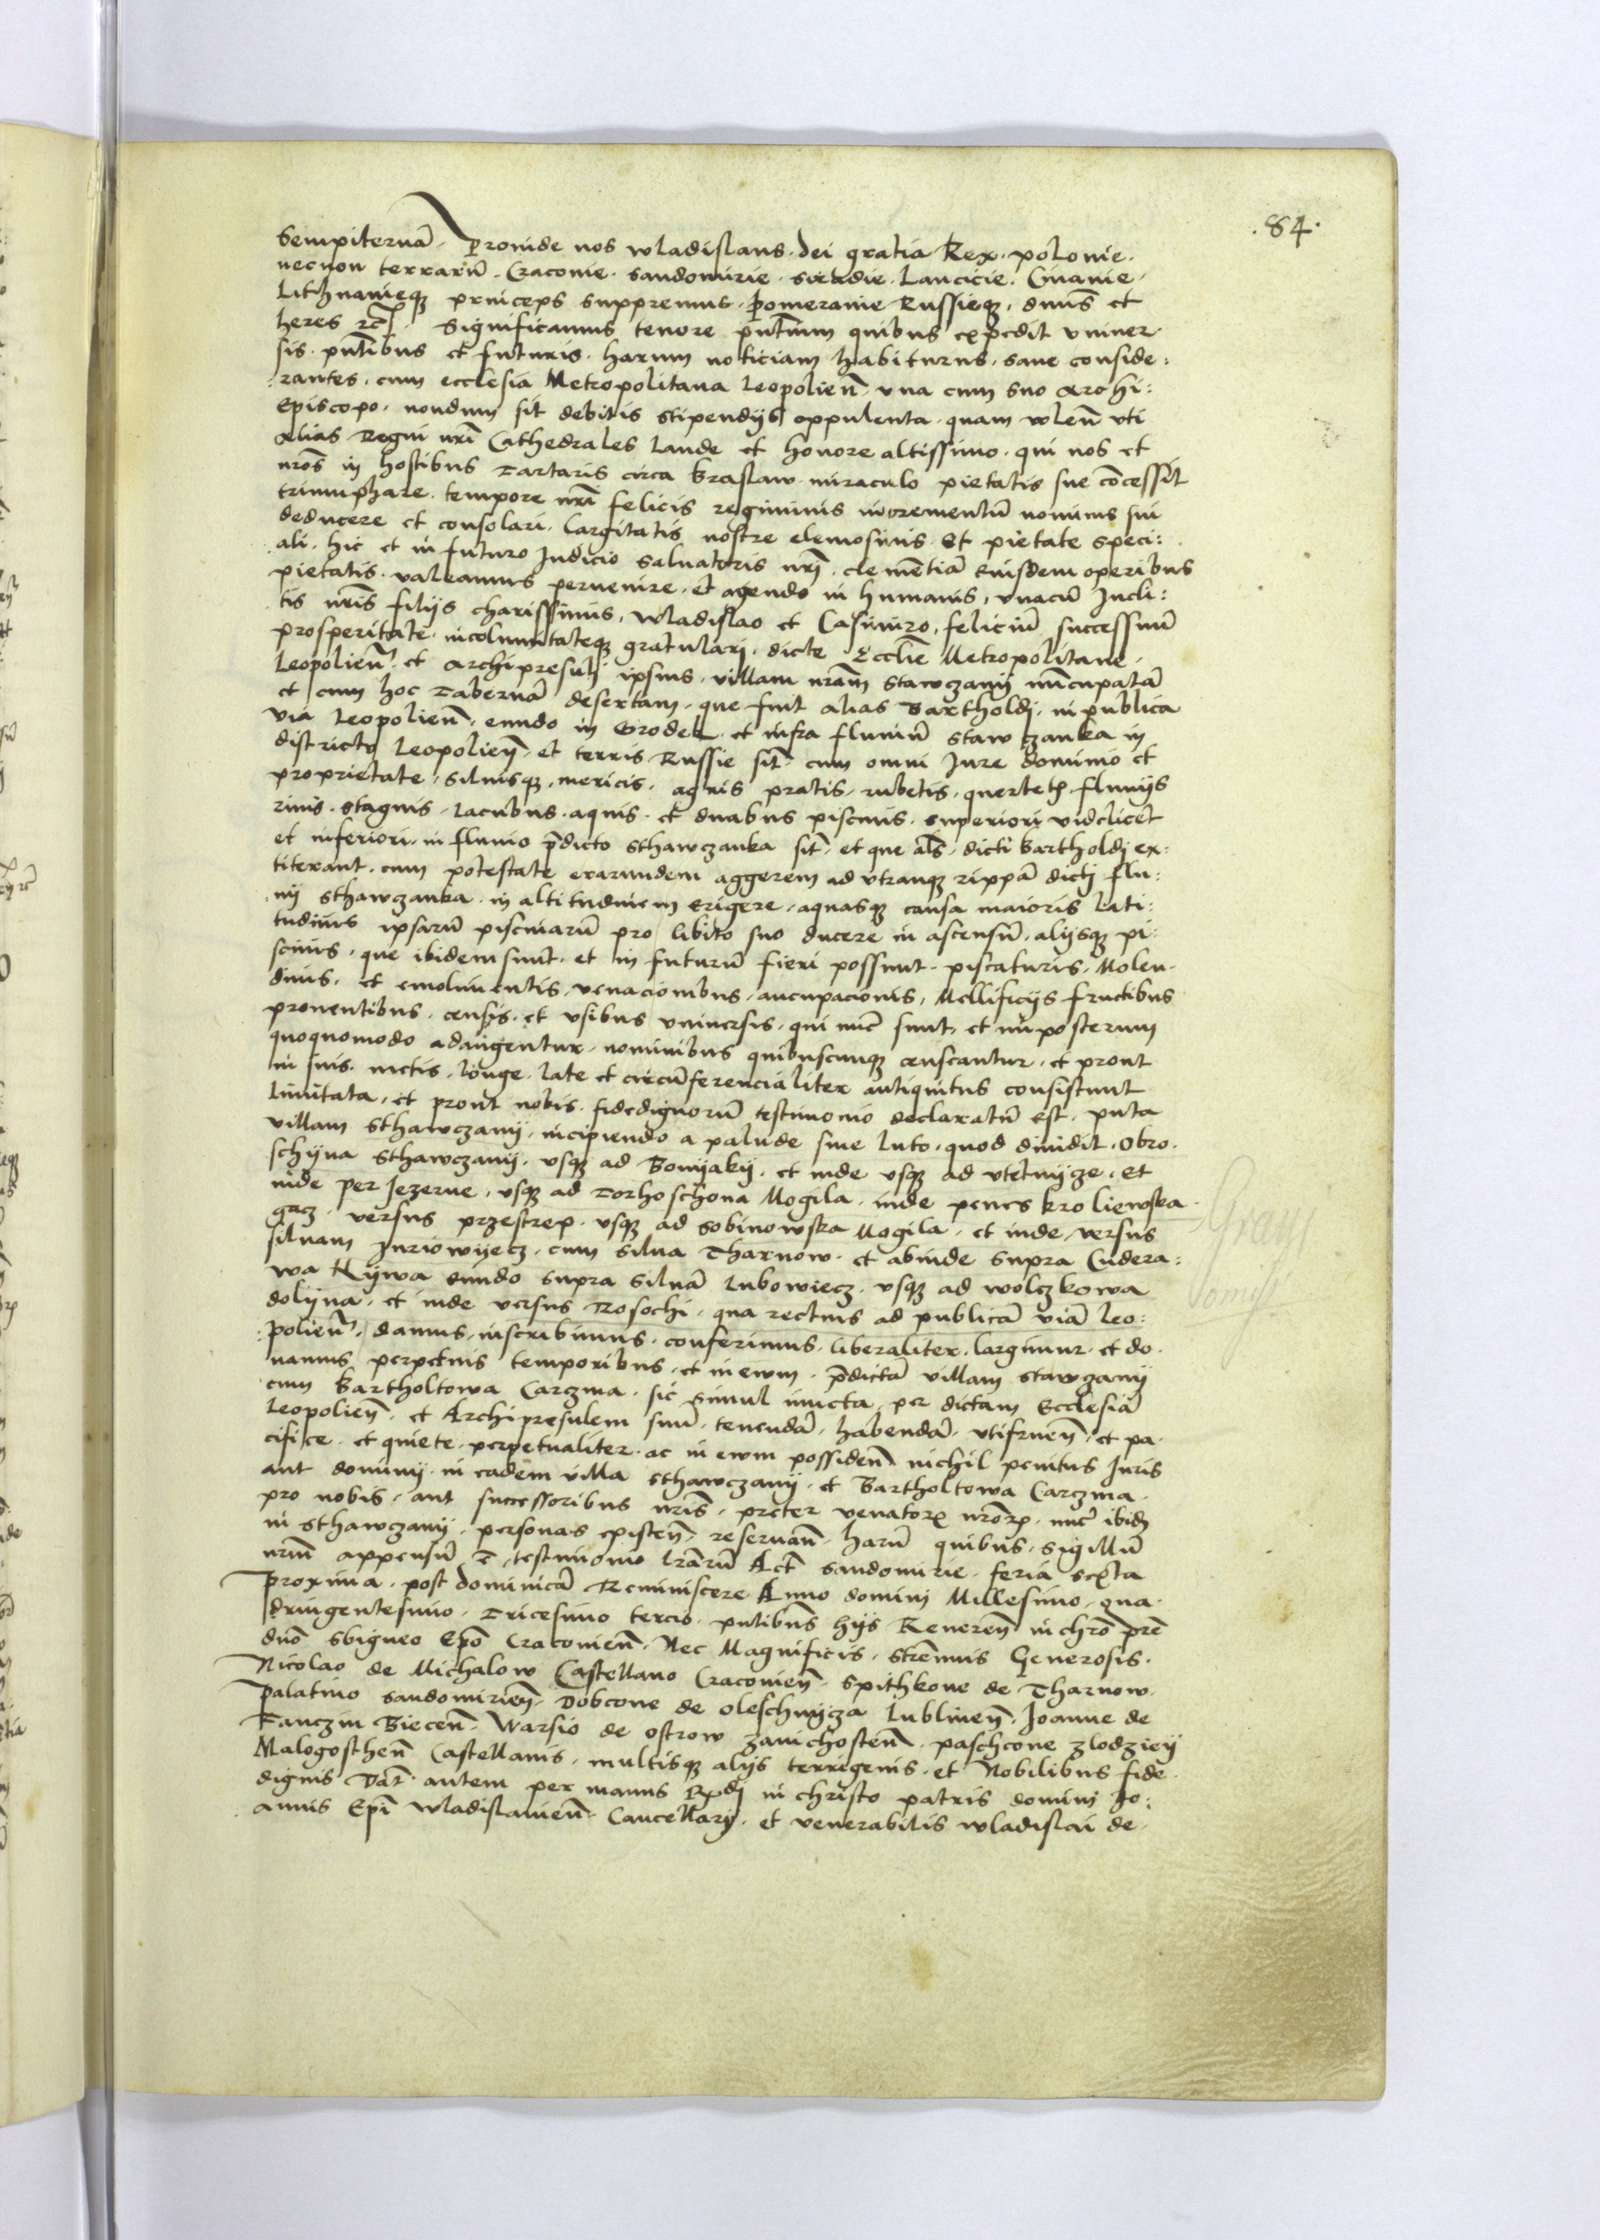 .84.
Sempiternā. Proinde nos wladislaus. dei gratia Rex. polonie.
necnon terrarū. Cracovie. sandomirie. siradie. Lancicie. Cuiavie.
Lithuanieqꝫ princeps suppremus. Pomeranie Russieqꝫ. dmūs et
heres rc̄. Significamus tenore pn̄tium quibus expedit univer
sis. pn̄tibus et futuris. harum noticiam habiturus. sane conside:
rantes. cum ecclesia Metropolitana Leopolien̄ una cum suo archi:
Episcopo. nondum sit debitis stipendijs oppulenta. quam vlen̄ uti
alias Regni nr̄i Cathedrales laude et honore altissimo. qui nos et
nros̄ in hostibus Tartaris circa braslaw. miraculo pietatis sue cōcessit
triumphare. tempore nr̄i felicis regiminis incrementū nominis sui
deducere et consolari. largitatis nostre elemosinis. Et pietate speci:
ali. hic et in futuro Judicio salvatoris nr̄i. clemētiā Eiusdem operibus
pietatis. valeamus pervenire. et agendo in humanis, unacū Incli:
tis nr̄is filijs charissimis, Wladislao et Casimiro, feliciū successuū
prosperitate. incolumitateqꝫ gratulari. dicte Ecclīe Metropolitane.
Leopolien̄. et Archipresuli ipsius. villam nrām Stawczany nūcupatā
et cum hoc Tabernā desertam. que fuit alias Bartholdi. in publica
via Leopolien̄. eundo in Grodek. et infra fluviū stawczanka in
districto Leopolien̄. et terris Russie sit̄. cum omni Jure dominio et
proprietate. silvisqꝫ. mericis. agris pratis. rubetis. quercetꝫ. fluvijs
rivis. stagnis. lacubus. aquis. et duabus piscinis. superiori videlicet
et inferiori. in fluvio p̄dicto Sthawczanka sit̄. et que als̄. dicti bartholdi ex:
titerant. cum potestate erarundem aggerem ad utranqꝫ rippā dicti flu:
vij sthawczanka. in altitudinem erigere. aquasqꝫ causa maioris lati:
tudinis ipsarū piscinarū pro libito suo ducere in ascensū. alijsqꝫ pi:
scinis. que ibidem sunt. et in futurū fieri possunt. piscaturis. Molen.
dinis. et emolumentis. venacionibus. aucupacionis. Mellificijs fructibus
proventibus. censis. et usibus universis. qui nūc sunt. et in posterum
quoquomodo adaugentur. nominibus quibuscunqꝫ censcantur. et prout
in suis. metis. longe. late et circūferencialiter antiquitus consistunt
Limitata. et prout nobis. fidedignorū testimonio declaratū est. puta
villam Sthawczany. incipiendo a palude sive luto. quod dividit. Obro.
schyna Sthawczany. usqꝫ ad Bonyaky. et inde usqꝫ ad utetnycze. Et
inde per Jezerne. usqꝫ ad Torhoschona Mogila. inde penes kroliewska
gacz. versus przestrep. usqꝫ ad Sobinowska Mogila. et inde. versus
silvam Juriowyecz. cum silva Tharnow. et abinde supra Cudera:
wa Nywa eundo supra silvā Lubowiecz. usqꝫ ad wolczkowa
dolyna. et inde versus Rosochi. qua rectius ad publicā viā leo:
polien̄. damus. inscribimus. conferimus. liberaliter. largimur. et do.
namus perpetuis temporibus. et in ewm. p̄dictā villam stawczany
cum Bartholtowa Carczma. sic simul iuncta. per dictam Ecclesiā
Leopolien̄. et Archipresulem suū. tenendā. habendā. utifruen̄. et pa.
cifice. et quiete. perpetualiter. ac in ewm possiden̄ nichil penitus Juris
aut dominij. in eadem villa sthawczany. et Bartholtowa Carczma.
pro nobis. aut successoribus nr̄is. preter venatorꝝ nrōrꝝ. nūc ibid̄
in sthawczany. personas existen̄. reservan̄. harū quibus. sigillū
nrūm appensū ē. testimonio lrārū Act̄ Sandomirie. feria sexta
Proxima. post dominicā Reminiscere Anno domini Millesimo. qua.
dringentesimo. Tricesimo tercio. pn̄tibus hijs Reveren̄ in chrō pr̄e
dnō Sbigneo Epō Cracovien̄. Nec Magnificis. Strēnuis Generosis.
Nicolao de Michalow Castellano Cracovien̄. Spithkone de Tharnow.
Palatino Sandomirien̄. Dobcone de Oleschnycza Lublinen̄. Joanne de
Tanczin Biecen̄. Warsio de Ostrow Zawichosten̄. Paschcone Zlodziey
Malogosthen̄ Castellanis. multisqꝫ alijs terrigenis. et Nobilibus fide
dignis Dat̄. autem per manus Rxdi in christo patris domini Jo:
annis Epī Wladislavien̄. Cancellarij. et venerabilis wladislai de.